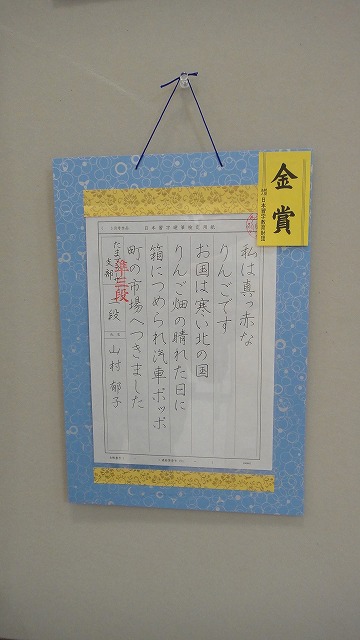 金賞
日本習字教育財団
日本習字硬筆検定用紙
私は真っ赤な
りんごです
お国は寒い北の国
りんご畑の晴れた日に
箱につめられ汽車ポッポ
町の市場へつきました
準三段
支部
二段
山村郁子